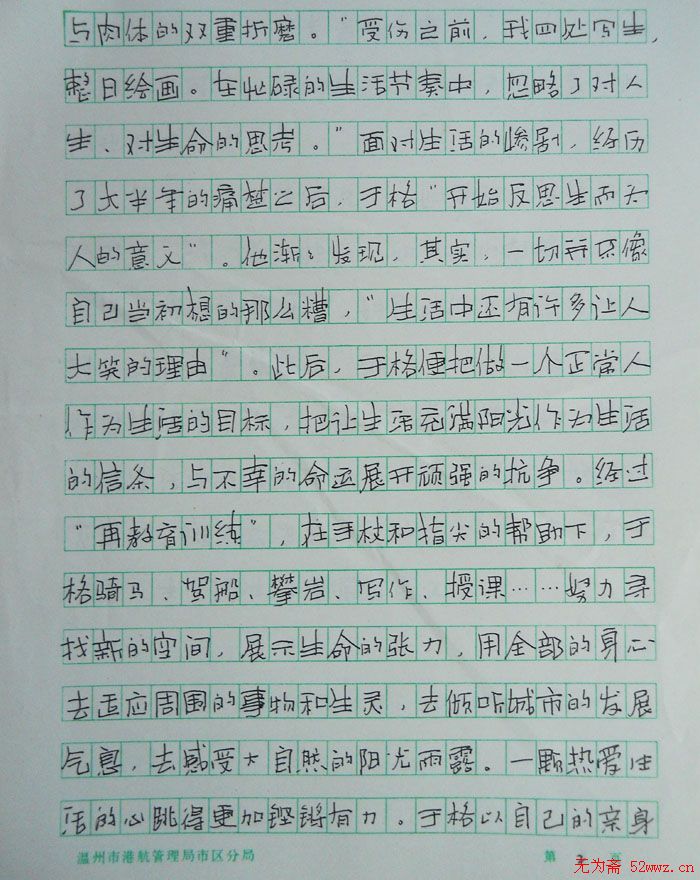 与肉体的双重折磨。“受伤之前，我四处写生，
整日绘画。在忙碌的生活节奏中，忽略了对人
生、对生命的思考。”面对生活的惨剧，经历
了大半年的痛楚之后，于格“开始反思生而为
人的意义”。他渐渐发现，其实，一切并不像
自己当初想的那么糟，“生活中还有许多让人
大笑的理由”。此后，于格便把做一个正常人
作为生活的目标，把让生活充满阳光作为生活
的信条，与不幸的命运展开顽强的抗争。经过
“再教育训练”，在手杖和指尖的帮助下，于
格骑马、驾船、攀岩、写作、授课……努力寻
找新的空间，展示生命的张力，用全部的身心
去适应周围的事物和生灵，去倾听城市的发展
气息，去感受大自然的阳光雨露。一颗热爱生
活的心跳得更加铿锵有力。于格以自己的亲身
温州市港航管理局市区分局 第 2 页
无为斋 52wwz.cn